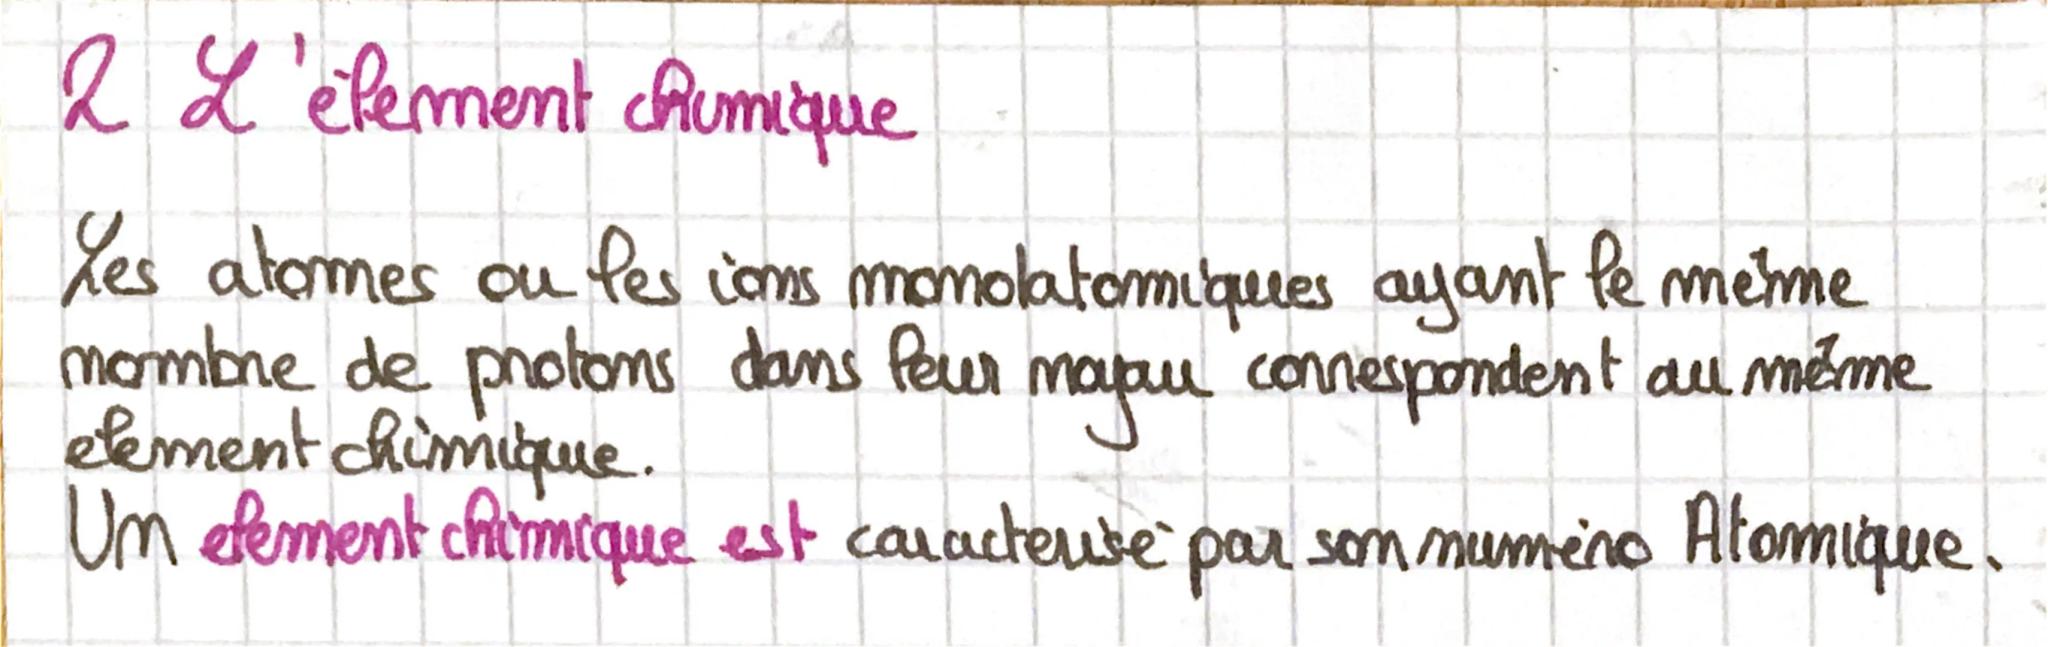 2 L'élement chimique
Les atomes ou les ions monolatomiques ayant le même
nombre de protons dans leur noyau correspondent au même
element chimique.
Un element chimique est caracterisé par son numéro Atomique.